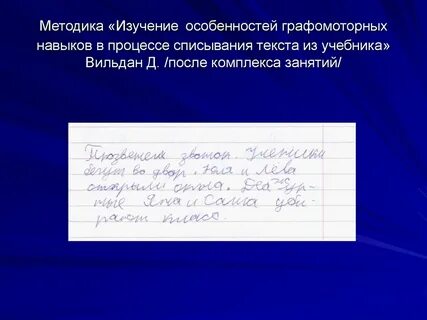 Методика «Изучение особенностей графомоторных
навыков в процессе списывания текста из учебника»
Вильдан Д. /после комплекса занятий/
Прозвенел звонок. Ученики
бегут во двор. Юля и Лёва
открыли окна. Дежур-
ные Яна и Саша уби-
рают класс.